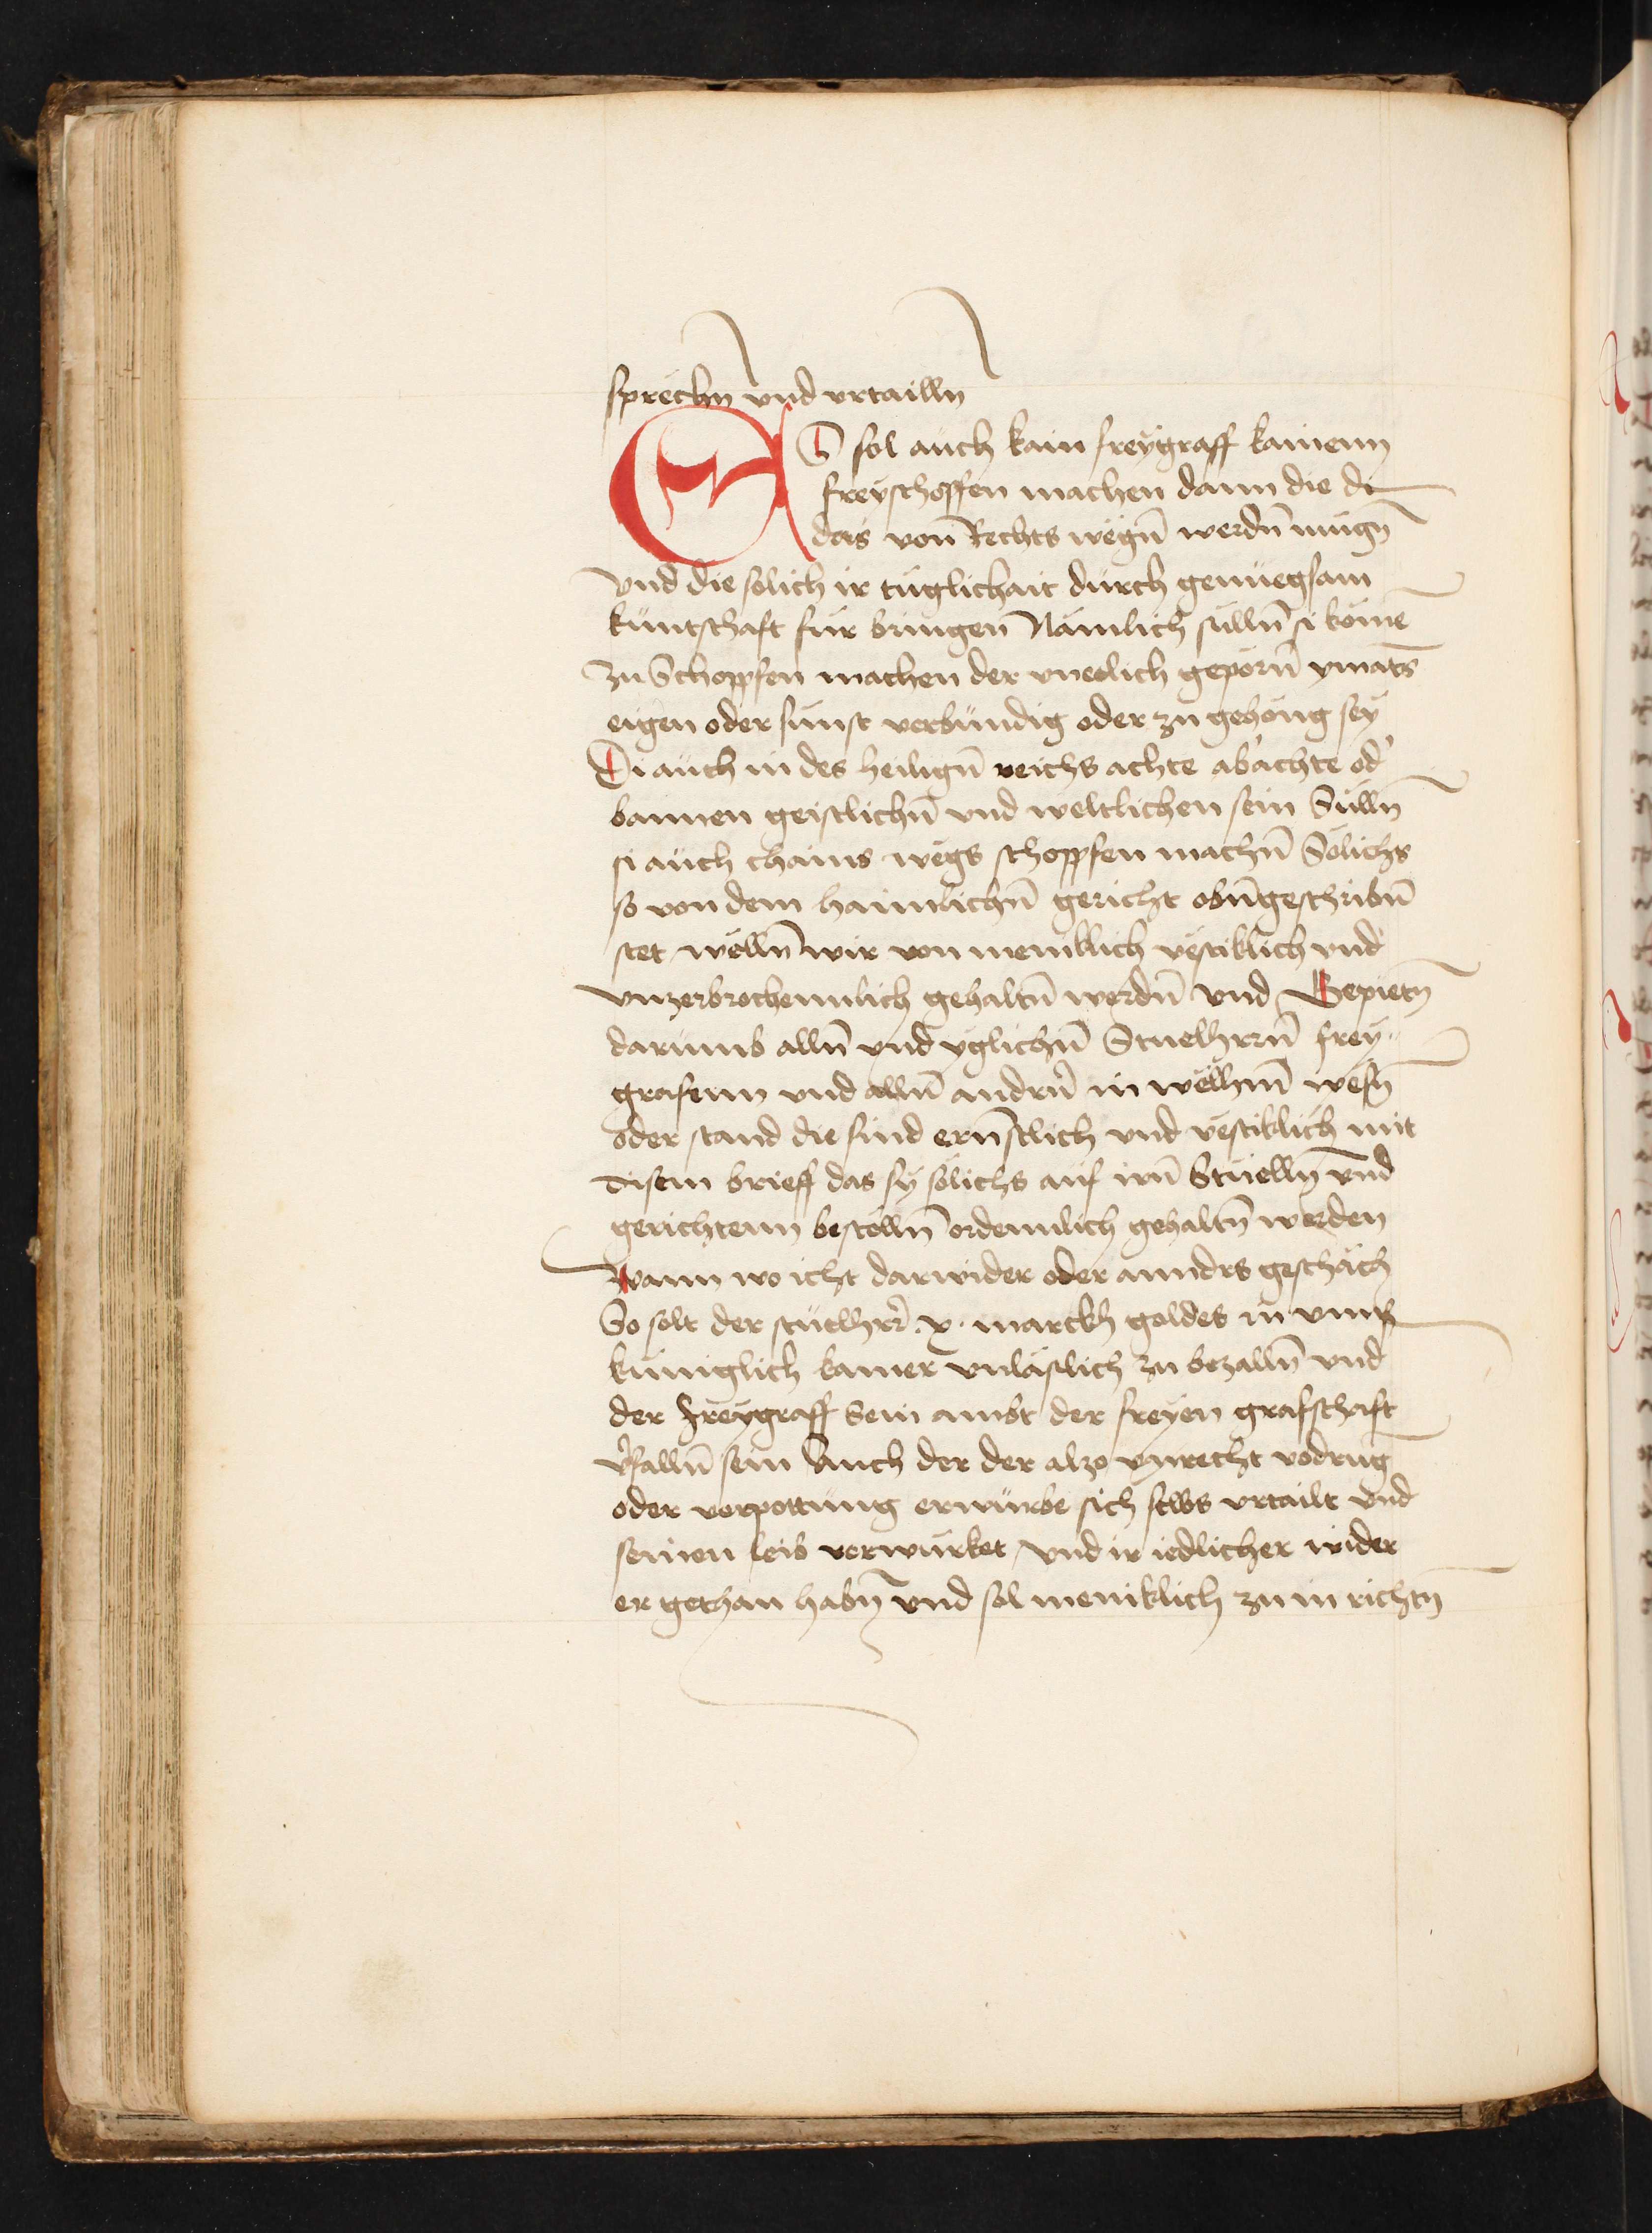 sprechn vnd vrtailln
ES sol auch kain freygraff kainenn
freyschopffen machen dann die di
das von Rechts wegn̄ werdn̄ mugn̄
vnd die solich ir tuglichait durch genuegsam
kuntschaft fur bringen Nämlich sulln̄ si kōīnē
zu Schopfen machen der vneelich geporn̄ ymāts
eigen oder sunst verbundig oder zu gehōng sey
Di auch in des heilign̄ reichs achte ab'achte od'
bannen geistlichn̄ vnd weltlichen sein Sulln̄
si auch chains wegs schopfen machn̄ Solichs
so von dem haimlichn̄ gericht obn̄geschribn̄
stet welln̄ wir von meniklich vestiklich vnd
vnzerbrochennlich gehaltn̄ werdn̄ vnd Gepietn̄
darumb alln̄ vnd yglichn̄ Stuelhrrn̄ frey
grafenn vnd alln̄ andrn̄ in wellhm̄ wesn̄
oder stand die sind ernstlich vnd vestiklich mit
disem brieff das sy solichs auf irn̄ Stuelln̄ vnd
gerichtenn bestelln̄ ordennlich gehaltn̄ werden
Wann wo icht darwider oder anndrs geschäch
So solt der stuelhrr̄ .x. marckh goldes in vnns
kuniglich kamer vnläslich zu bezalln̄ vnd
der freygraff Sein ambt der freyen grafschaft
v'falln̄ sein Auch der der alzo vnrecht vodrug
oder verpottung erwurbe sich selbs vrtailt vnd
seinen leib verwurket vnd ir iedlicher wider
er gethan habn̄ vnd sol meniklich zu in richtn̄